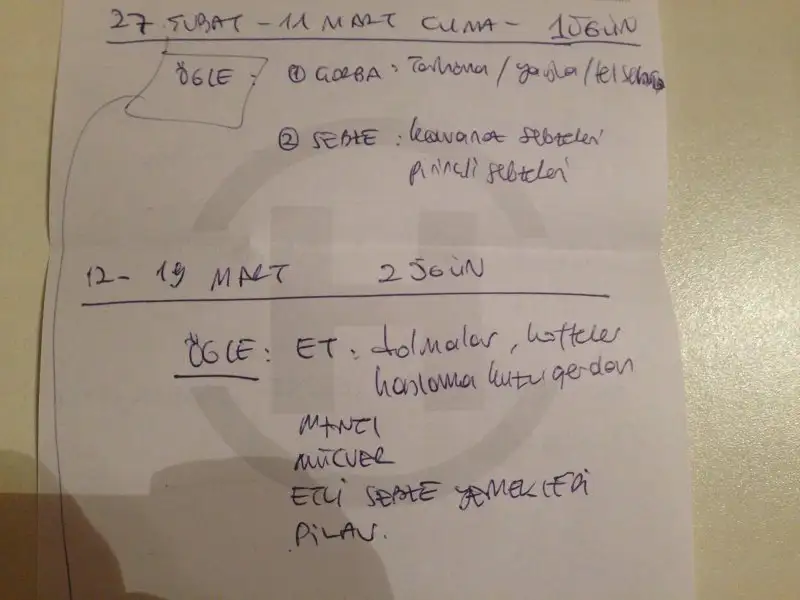 27 ŞUBAT - 11 MART CUMA - 1 ÖĞÜN
ÖĞLE : ① ÇORBA : Tarhana / yayla / tel şehriye
② SEBZE : kavanoz sebzeleri
pirinçli sebzeleri
12 - 19 MART 2 ÖĞÜN
ÖĞLE : ET : dolmalar, köfteler
haşlama kuzu gerdan
MANTI
MÜCVER
ETLİ SEBZE YEMEKLERİ
PİLAV.
H